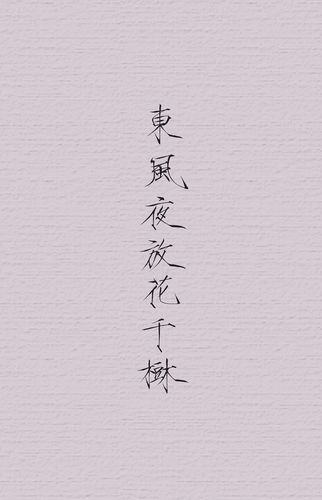 東風夜放花千樹